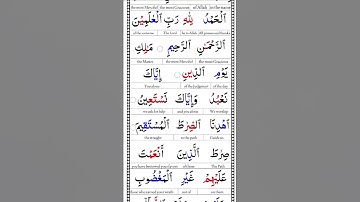 the most Merciful the most Gracious of Allah in the name
اَلْحَمْدُ لِلّٰهِ رَبِّ الْعٰلَمِيْنَ
of the universe The Lord be to Allah All praises and thanks
الرَّحْمٰنِ الرَّحِيْمِ مٰلِكِ
the Master the most Merciful the most Gracious
يَوْمِ الدِّيْنِ اِيَّاكَ
You alone of the Judgment of the day
نَعْبُدُ وَاِيَّاكَ نَسْتَعِيْنُ
we ask for help and you alone We worship
اِهْدِنَا الصِّرٰطَ الْمُسْتَقِيْمَ
the straight to the path Guide us
صِرٰطَ الَّذِيْنَ اَنْعَمْتَ
you have bestowed your favours of those The Path
عَلَيْهِمْ غَيْرِ الْمَغْضُوْبِ
those who earned your wrath not of on them